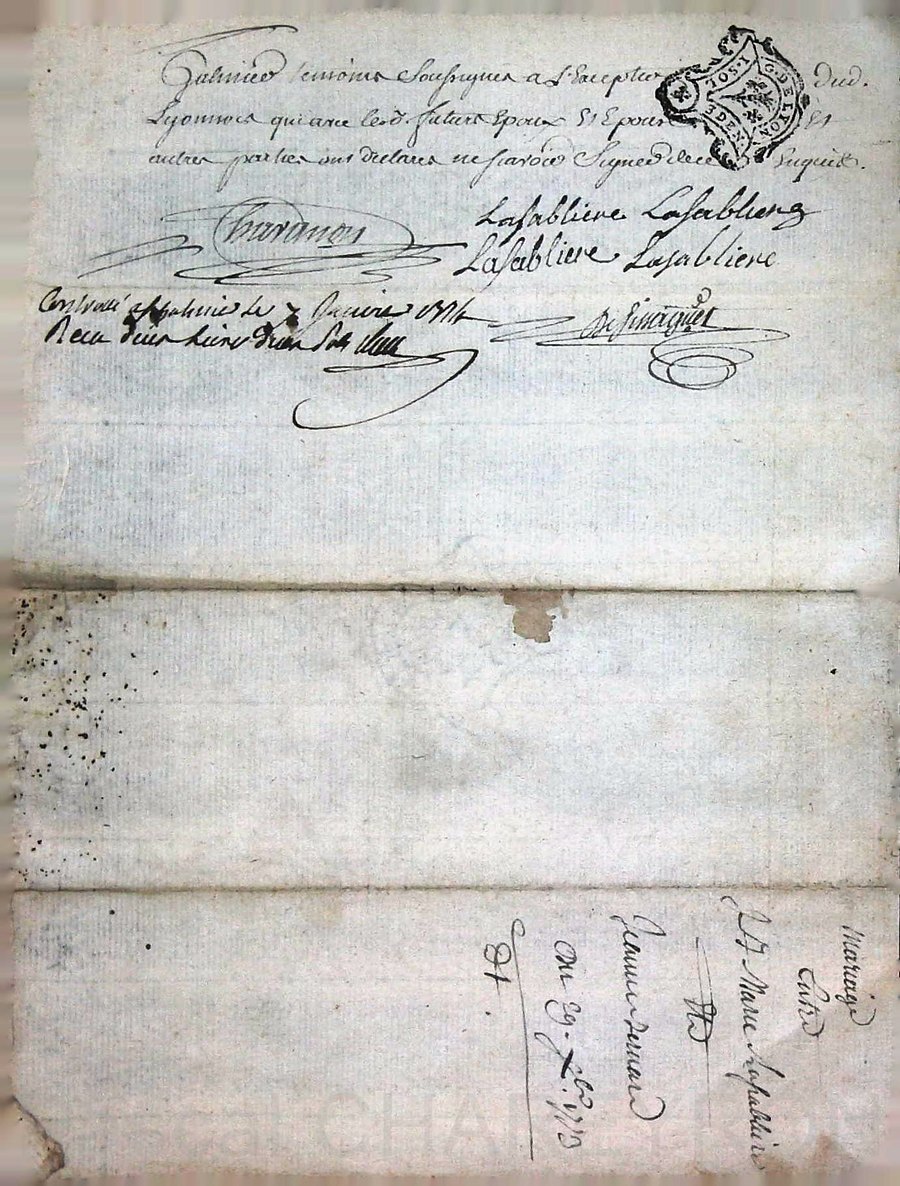 Galmier temoins Soussignés a l'Exception dud.
Lyonnois qui avec lesd. futurs Epoux Et Epouse Et
autres parties ont declaré ne scavoir Signer de ce Enquis.
G. DE LYON
1. SOL
Lasabliere Lasabliere
Lasabliere Lasabliere
Controllé a St galmier le 7 Janvier 1774
Recu
Mariage
Entre
Marie Lasabliere
Et
Jeanne Bernard
Du 29. Xbre 1773